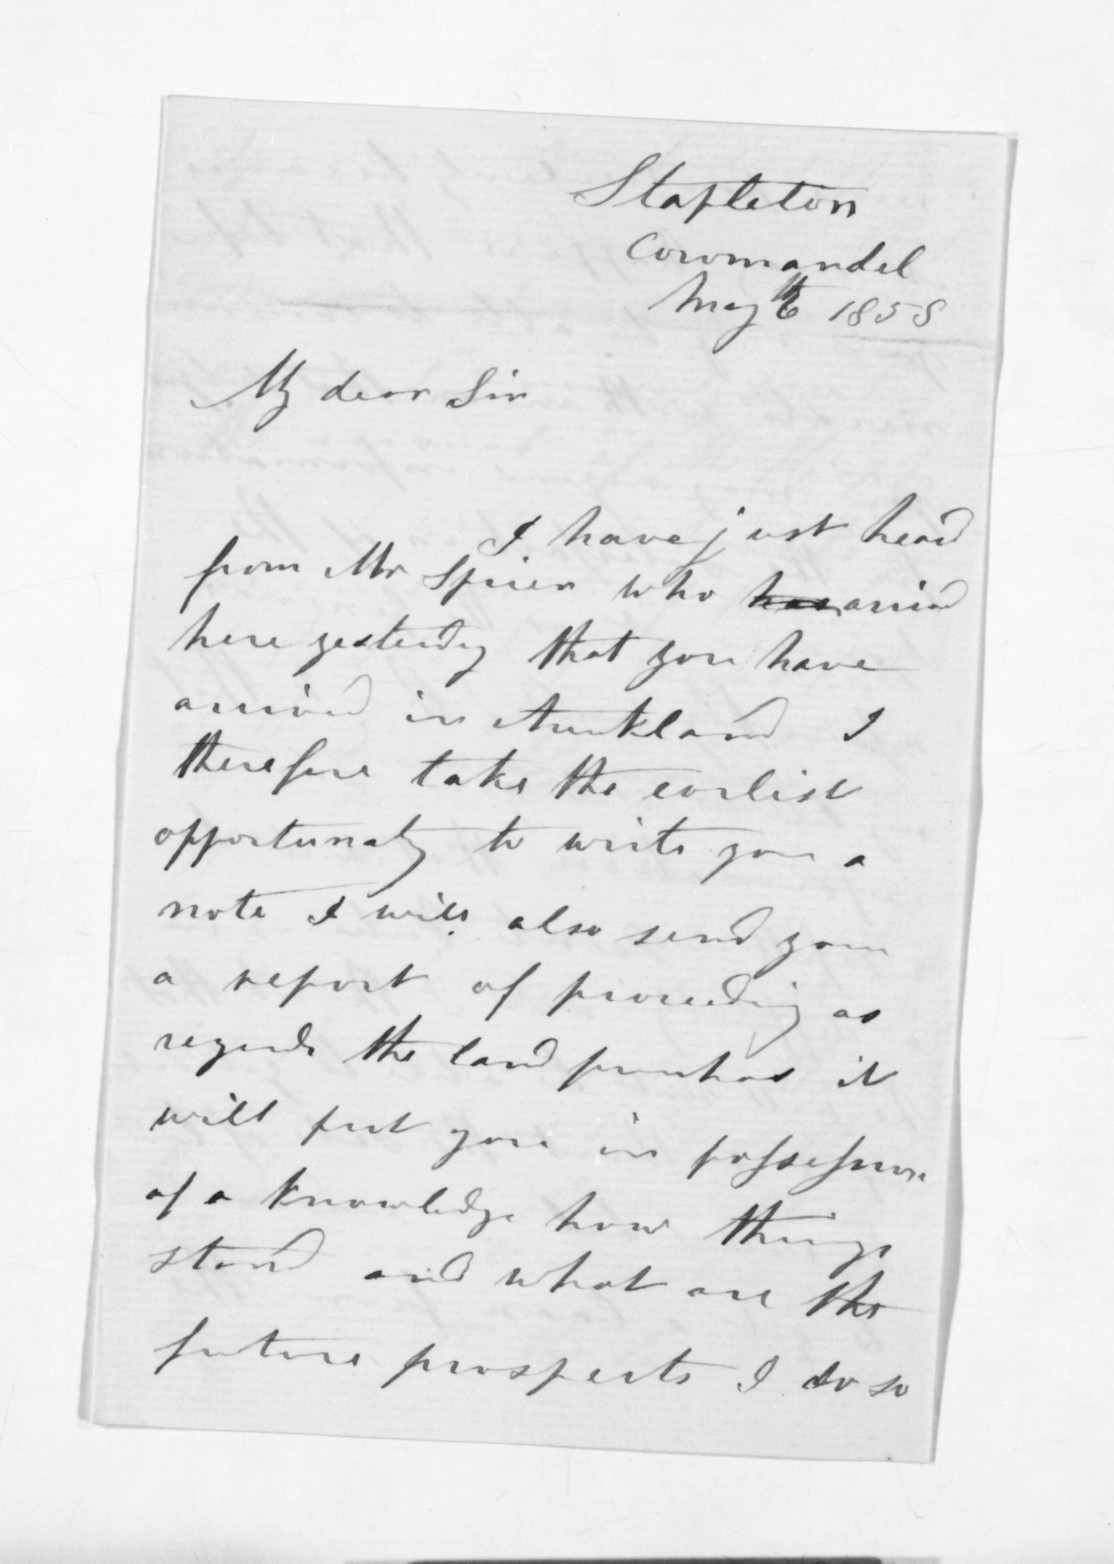 Stapleton
Coromandel
May 6th 1858
My dear Sir
I have just heard
from Mr Spier who has arrived
here yesterday that you have
arrived in Auckland I
therefore take the earlist
opportunaty to write you a
note I will also send you
a report of proceeding as
regards the land purchas it
will put you in possession
of a knowledge how things
stand and what are the
future prospects I do so